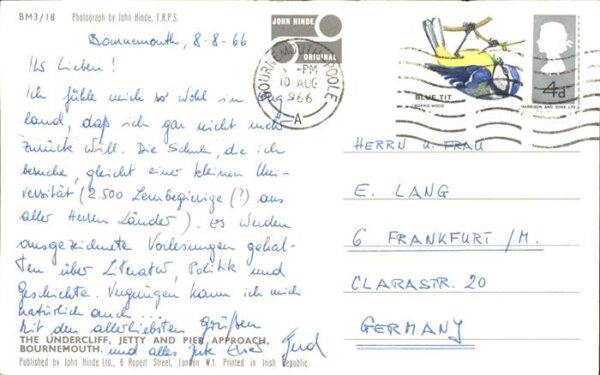 BM3/18 Photograph by John Hinde, F.R.P.S.
Bournemouth, 8-8-66
Ihr Lieben!
Ich fühle mich so wohl in Eng
land, daß ich gar nicht mehr
zurück will. Die Schule, die ich
besuche, gleicht einer kleinen Uni-
versität (2.500 Lernbegierige (?) aus
aller Herren Länder). Es werden
ausgezeichnete Vorlesungen gehal-
ten über Literatur, Politik und
Geschichte. Vergnügen kann ich mich
natürlich auch...
Mit den allerliebsten Grüßen
und alles Gute Euer
THE UNDERCLIFF, JETTY AND PIER APPROACH,
BOURNEMOUTH.
Published by John Hinde Ltd., 6 Rupert Street, London W.1. Printed in Irish Republic.
JOHN HINDE
ORIGINAL
BOURNEMOUTH-POOLE
-PM
10 AUG
1966
A
BLUE TIT
4d
HARRISON AND SONS LTD
HERRN u. FRAU
E. LANG
6 FRANKFURT /M.
CLARASTR. 20
GERMANY